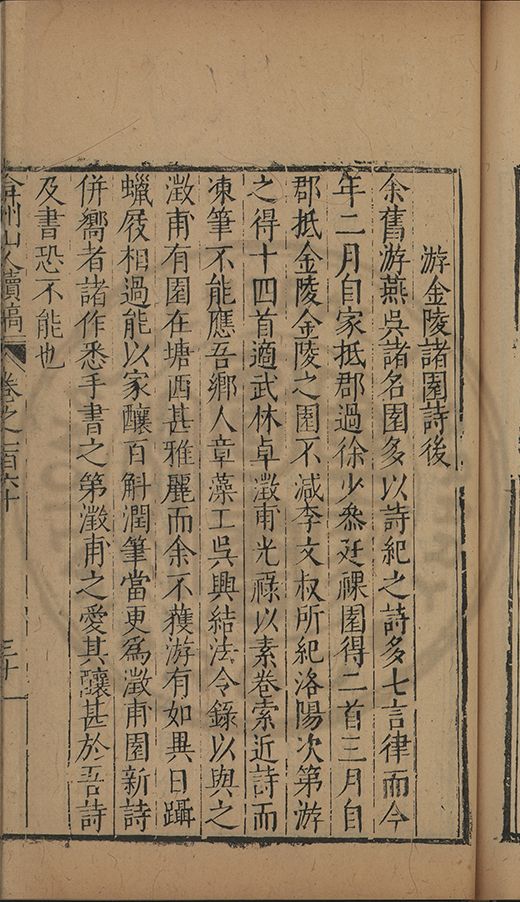 游金陵諸園詩後
余舊游燕吳諸名園多以詩紀之詩多七言律而今
年二月自家抵郡過徐少叅廷祼園得二首三月自
郡抵金陵金陵之園不減李文叔所紀洛陽次第游
之得十四首適武林卓澂甫光祿以素卷索近詩而
凍筆不能應吾鄉人章藻工吳興結法令錄以與之
澂甫有園在塘西甚雅麗而余不穫游有如異日躡
蠟屐相過能以家釀百斛潤筆當更爲澂甫園新詩
併嚮者諸作悉手書之第澂甫之愛其釀甚於吾詩
及書恐不能也
弇州山人續稿 卷之一百六十 三十一